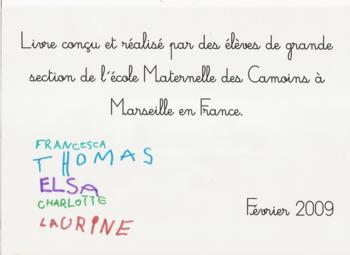 Livre conçu et réalisé par des élèves de grande
section de l'école Maternelle des Camoins à
Marseille en France.
FRANCESCA
THOMAS
ELSA
CHARLOTTE
LAURINE
Février 2009